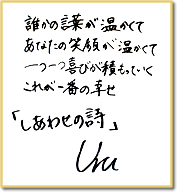 誰かの言葉が温かくて
あなたの笑顔が温かくて
一つ一つ喜びが積もっていく
これが一番の幸せ
「しあわせの詩」
Uru